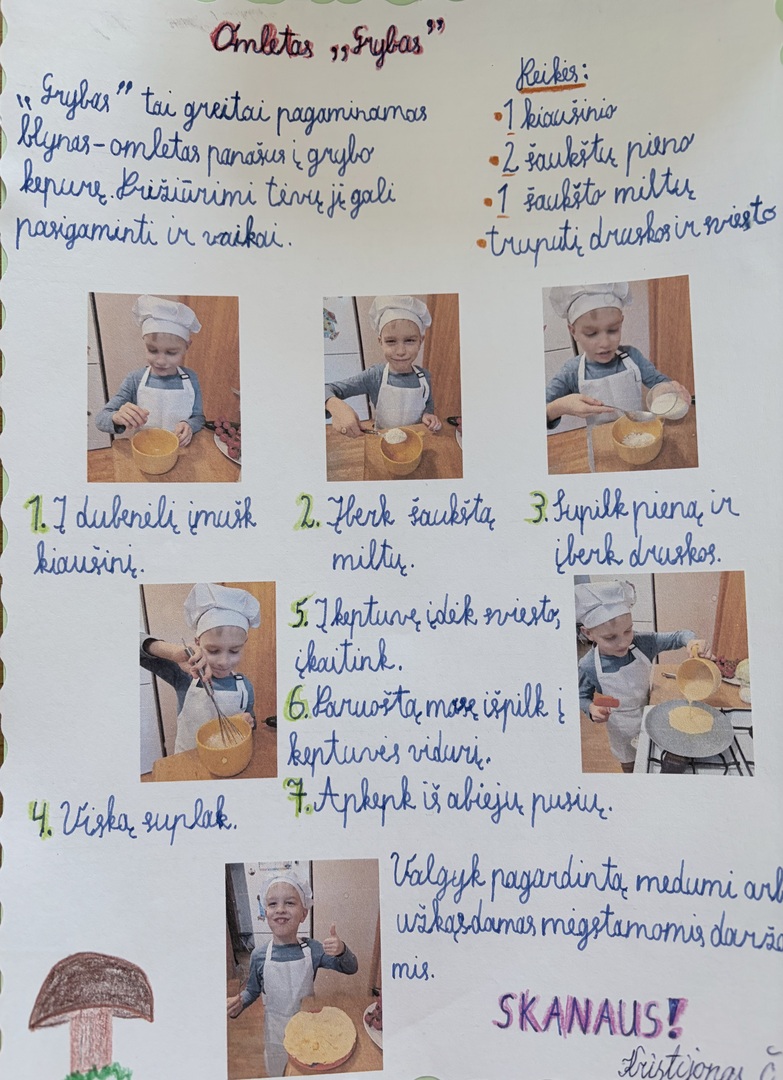 Omletas „Grybas”
„Grybas” tai greitai pagaminamas
blynas-omletas panašus į grybo
kepurę. Prižiūrimi tėvų jį gali
pasigaminti ir vaikai.
Reikės:
• 1 kiaušinio
• 2 šaukštų pieno
• 1 šaukšto miltų
• truputį druskos ir sviesto
1. Į dubenėlį įmušk
kiaušinį.
2. Įberk šaukštą
miltų.
3. Supilk pieną ir
įberk druskos.
4. Viską suplak.
5. Į keptuvę įdėk sviesto,
įkaitink.
6. Paruoštą masę išpilk į
keptuvės vidurį.
7. Apkepk iš abiejų pusių.
Valgyk pagardintą medumi
užkąsdamas mėgstamomis
mis.
SKANAUS!
Kristijonas Č